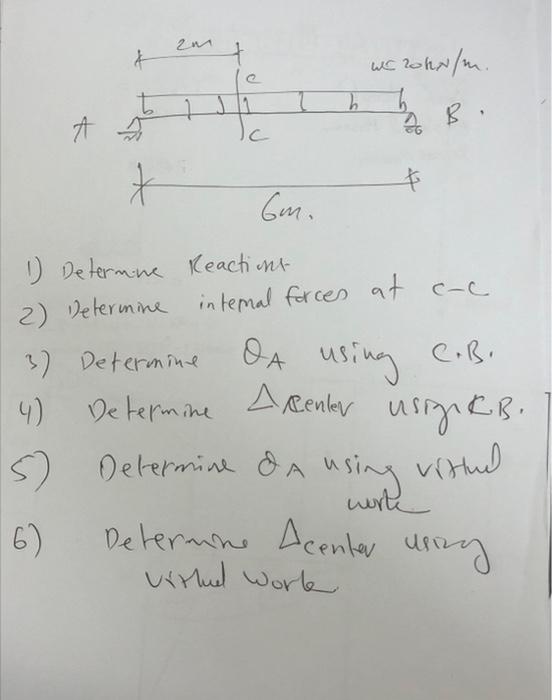 2m
c
w = 20 kN/m.
A
B.
c
6m.
1) Determine Reactions
2) Determine internal forces at c-c
3) Determine θA using C.B.
4) Determine Δcenter using C.B.
5) Determine θA using virtual
work
6) Determine Δcenter using
virtual work